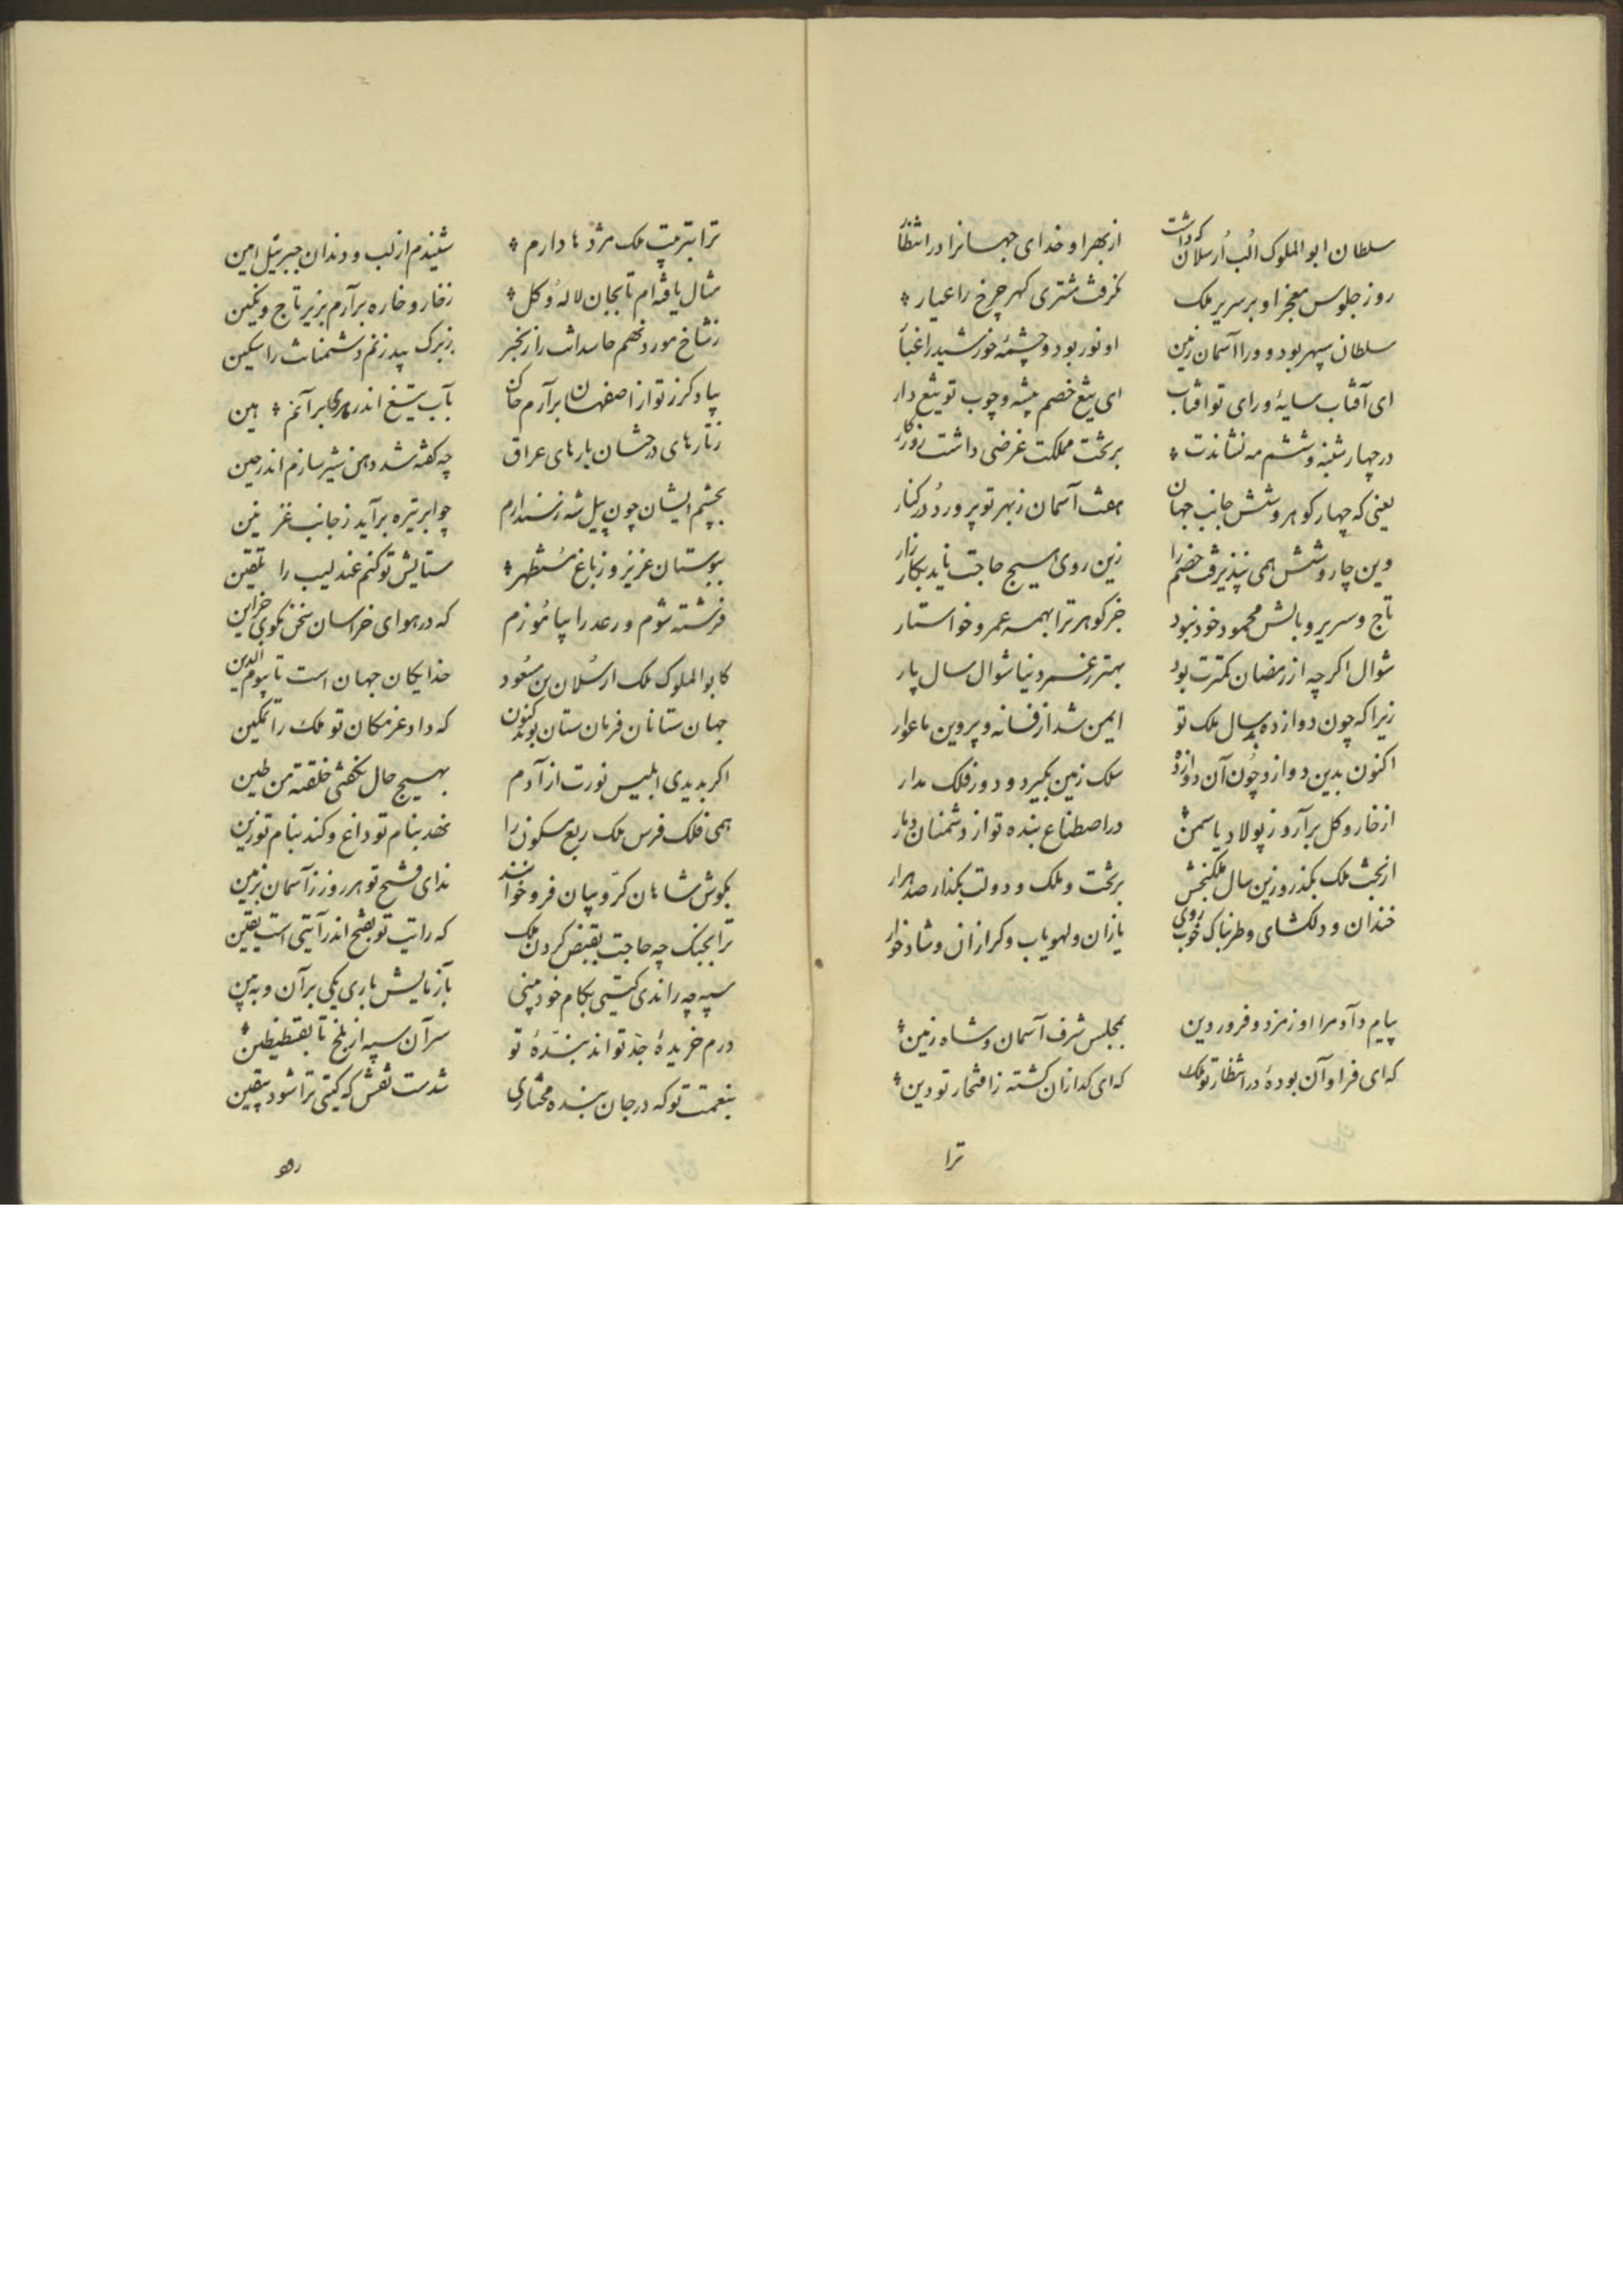 سلطان ابوالملوک الب ارسلان که داشت از بهر او خدای جهانرا در انتظار
روز جلوس معجز او بر سریر ملک نگرفت مشتری گهر چرخ را عیار
سلطان سپهر بود و ورا آسمان زمین او نور بود و چشمهٔ خورشید را غبار
ای آفتاب سایهٔ و رای تو آفتاب ای تیغ خصم پیشه و چوب تو تیغ دار
در چهارشنبه و ششم مه نشاندت بر تخت مملکت غرضی داشت روزگار
یعنی که چهار گوهر و شش جانب جهان هفت آسمان ز بهر تو پرورد در کنار
وین چار و شش همی نپذیرفت خصم را زین روی هیچ حاجت ناید بکارزار
تاج و سریر و بالش محمود خود نبود جز گوهر ترا بهمه عمر خواستار
شوال اگرچه از رمضان کمترت بود بهتر ز عمر و نیا شوال سال پار
زیرا که چون دوازده سال ملک تو ایمن شد از فسانه و پروین ما عوار
اکنون بدین دوازده چون آن دوازده ملک زمین بگیرد و دور فلک مدار
از خار و گل برآرد و ز پولاد یاسمن در اصطناع بنده تو از دشمنان دمار
از بخت ملک بگذر و زین سال ملک‌بخش بر تخت و ملک و دولت بگذار صد هزار
خندان و دلگشای و طربناک خوب روی یازان و لهو یاب و گرازان و شادخوار
پیام داد مرا اورمزد و فروردین بمجلس شرف آسمان و شاه زمین
که ای فراوان بودهٔ در انتظار تو ملک که ای گدازان گشته ز افتخار تو دین
ترا
ترا بتربیت ملک مژدها دارم شنیدم از لب و دندان جبرئیل امین
مثال یافته‌ام تا بجان لاله و گل ز خار و خاره برآرم بزیر تاج و نگین
ز شاخ مورد نهم حاسدانت را زنجیر ز برگ بید زنم دشمنانت را سکین
بیاد گرز تو از اصفهان برآرم خاک بآب تیغ اندر برآنم هین
ز تارهای درخشان بارهای عراق چه کفته شد دهن شیر سازم اندر حین
بچشم ایشان چون پیل شه ز سند آرم چو ابر تیره برآید ز جانب غزنین
ببوستان عزیز و ز باغ مستظهر ستایش تو کنم عندلیب را تلقین
فرشته شوم و رعد را بیاموزم که در هوای خراسان سخن نگوی جز این
کابوالملوک ملک ارسلان بن مسعود خدایگان جهان است تا بیوم الدین
جهان ستانان فرمان ستان بوند کنون که داد عز مکان تو ملک را تمکین
اگر بدیدی ابلیس نورت از آدم بهیچ حال نگفتی خلقته من طین
همی فلک فرس ملک ربع مسکون را نهد بنام تو داغ و کند بنام تو زین
بگوش شاهان کروبیان فرو خوانند ندای فتح تو هر روز ز آسمان بزمین
ترا بجنگ چه حاجت بقبض کردن ملک که رایت تو بفتح اندر آیتی است یقین
سپه چه راندی گیتی بکام خود بینی بآزمایش باری یکی بران و ببین
درم خریدهٔ جد تواند بندهٔ تو سران سپه از بلخ تا بقسطنطین
بنعمت تو که در جان بنده مختاری شدست نقش که گیتی ترا شود بیقین
رهو